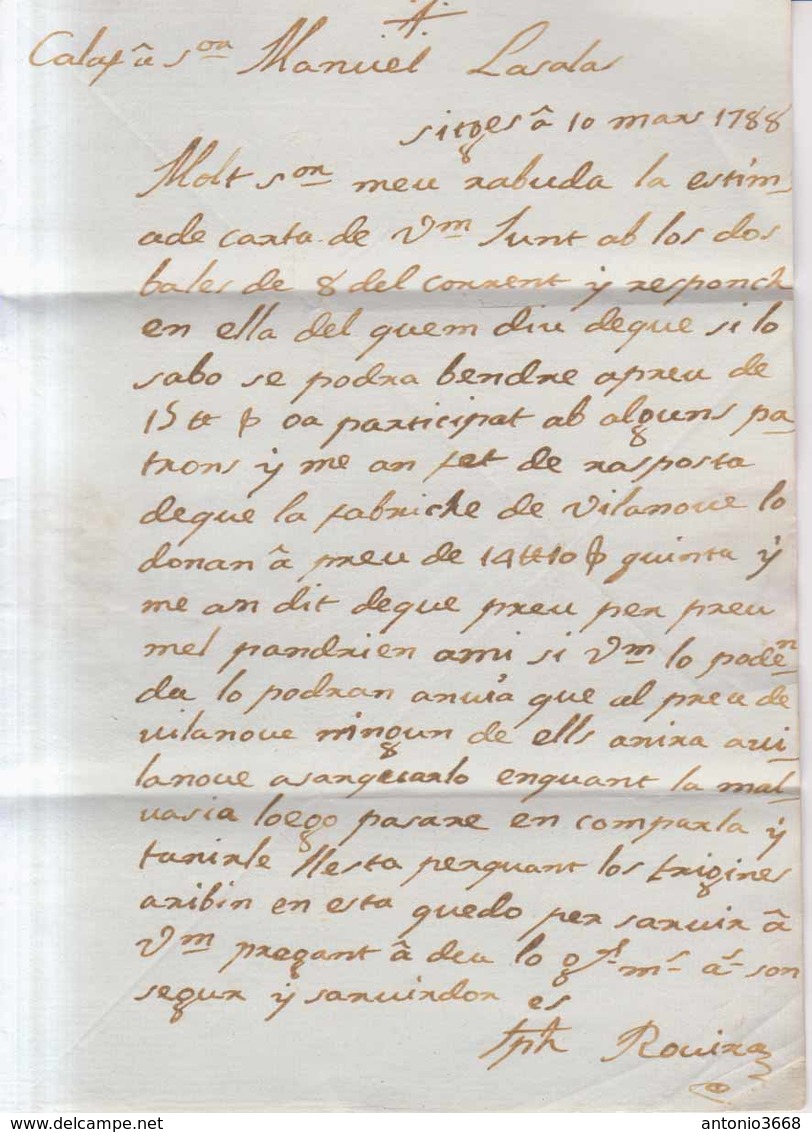 Calaf â sor Manuel Lasalas
sitges â 10 mars 1788
Molt sor meu rabuda la estim
ade carta de Vm Junt ab los dos
bales de 8 del corrent y responch
en ella del quem diu deque si lo
sabo se podra bendre apreu de
15 tt p oa participat ab alguns pa
trons y me an fet de rasposta
deque la fabriche de vilanove lo
donan â preu de 14tt10 p quinta y
me an dit deque preu per preu
mel pandrien ami si Vm lo poden
da lo podran anvia que al preu de
vilanove ningun de ells anira avi
lanove asarquarlo enquant la mal
vasia loego pasare en comparla y
tanirle llesta perquant los trigines
aribin en esta quedo per sarvir â
Vm pregant â deu lo gt ms as son
segur y sarvirdor es
Jph Rovira
antonio3668